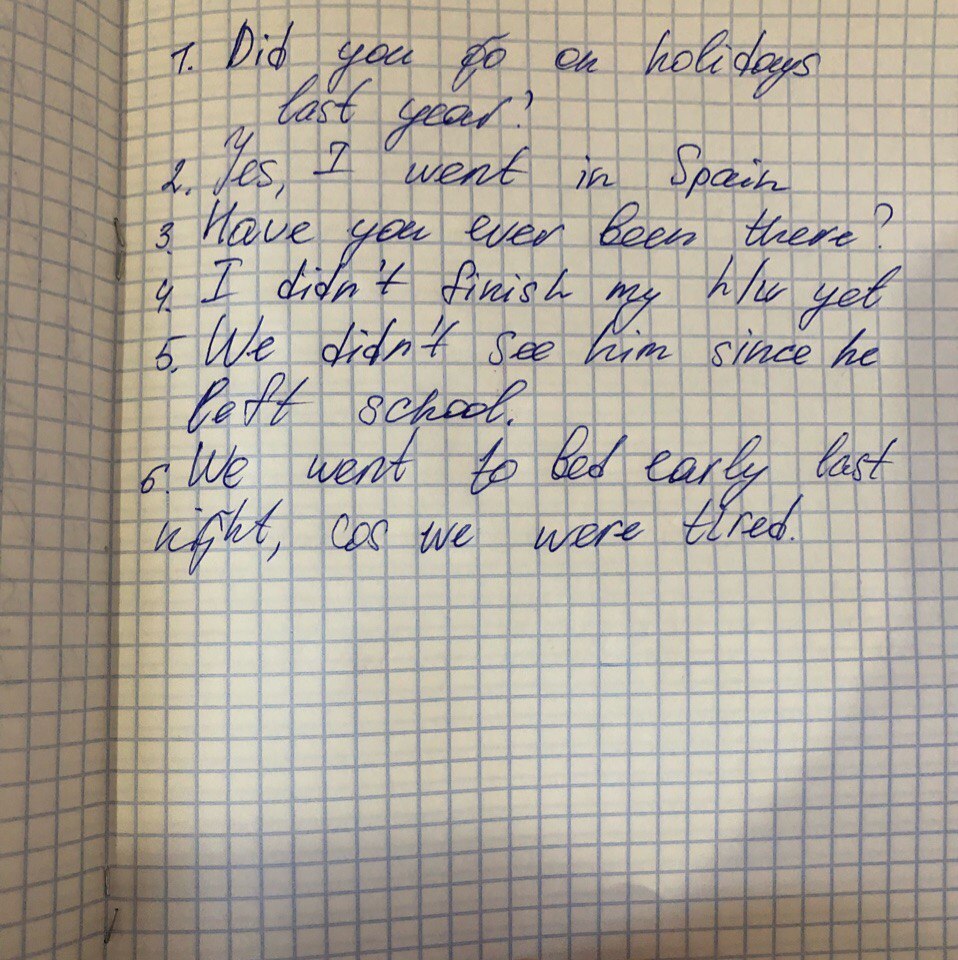 1. Did you go on holidays
last year?
2. Yes, I went in Spain
3. Have you ever been there?
4. I didn't finish my h/w yet
5. We didn't see him since he
left school.
6. We went to bed early last
night, cos we were tired.